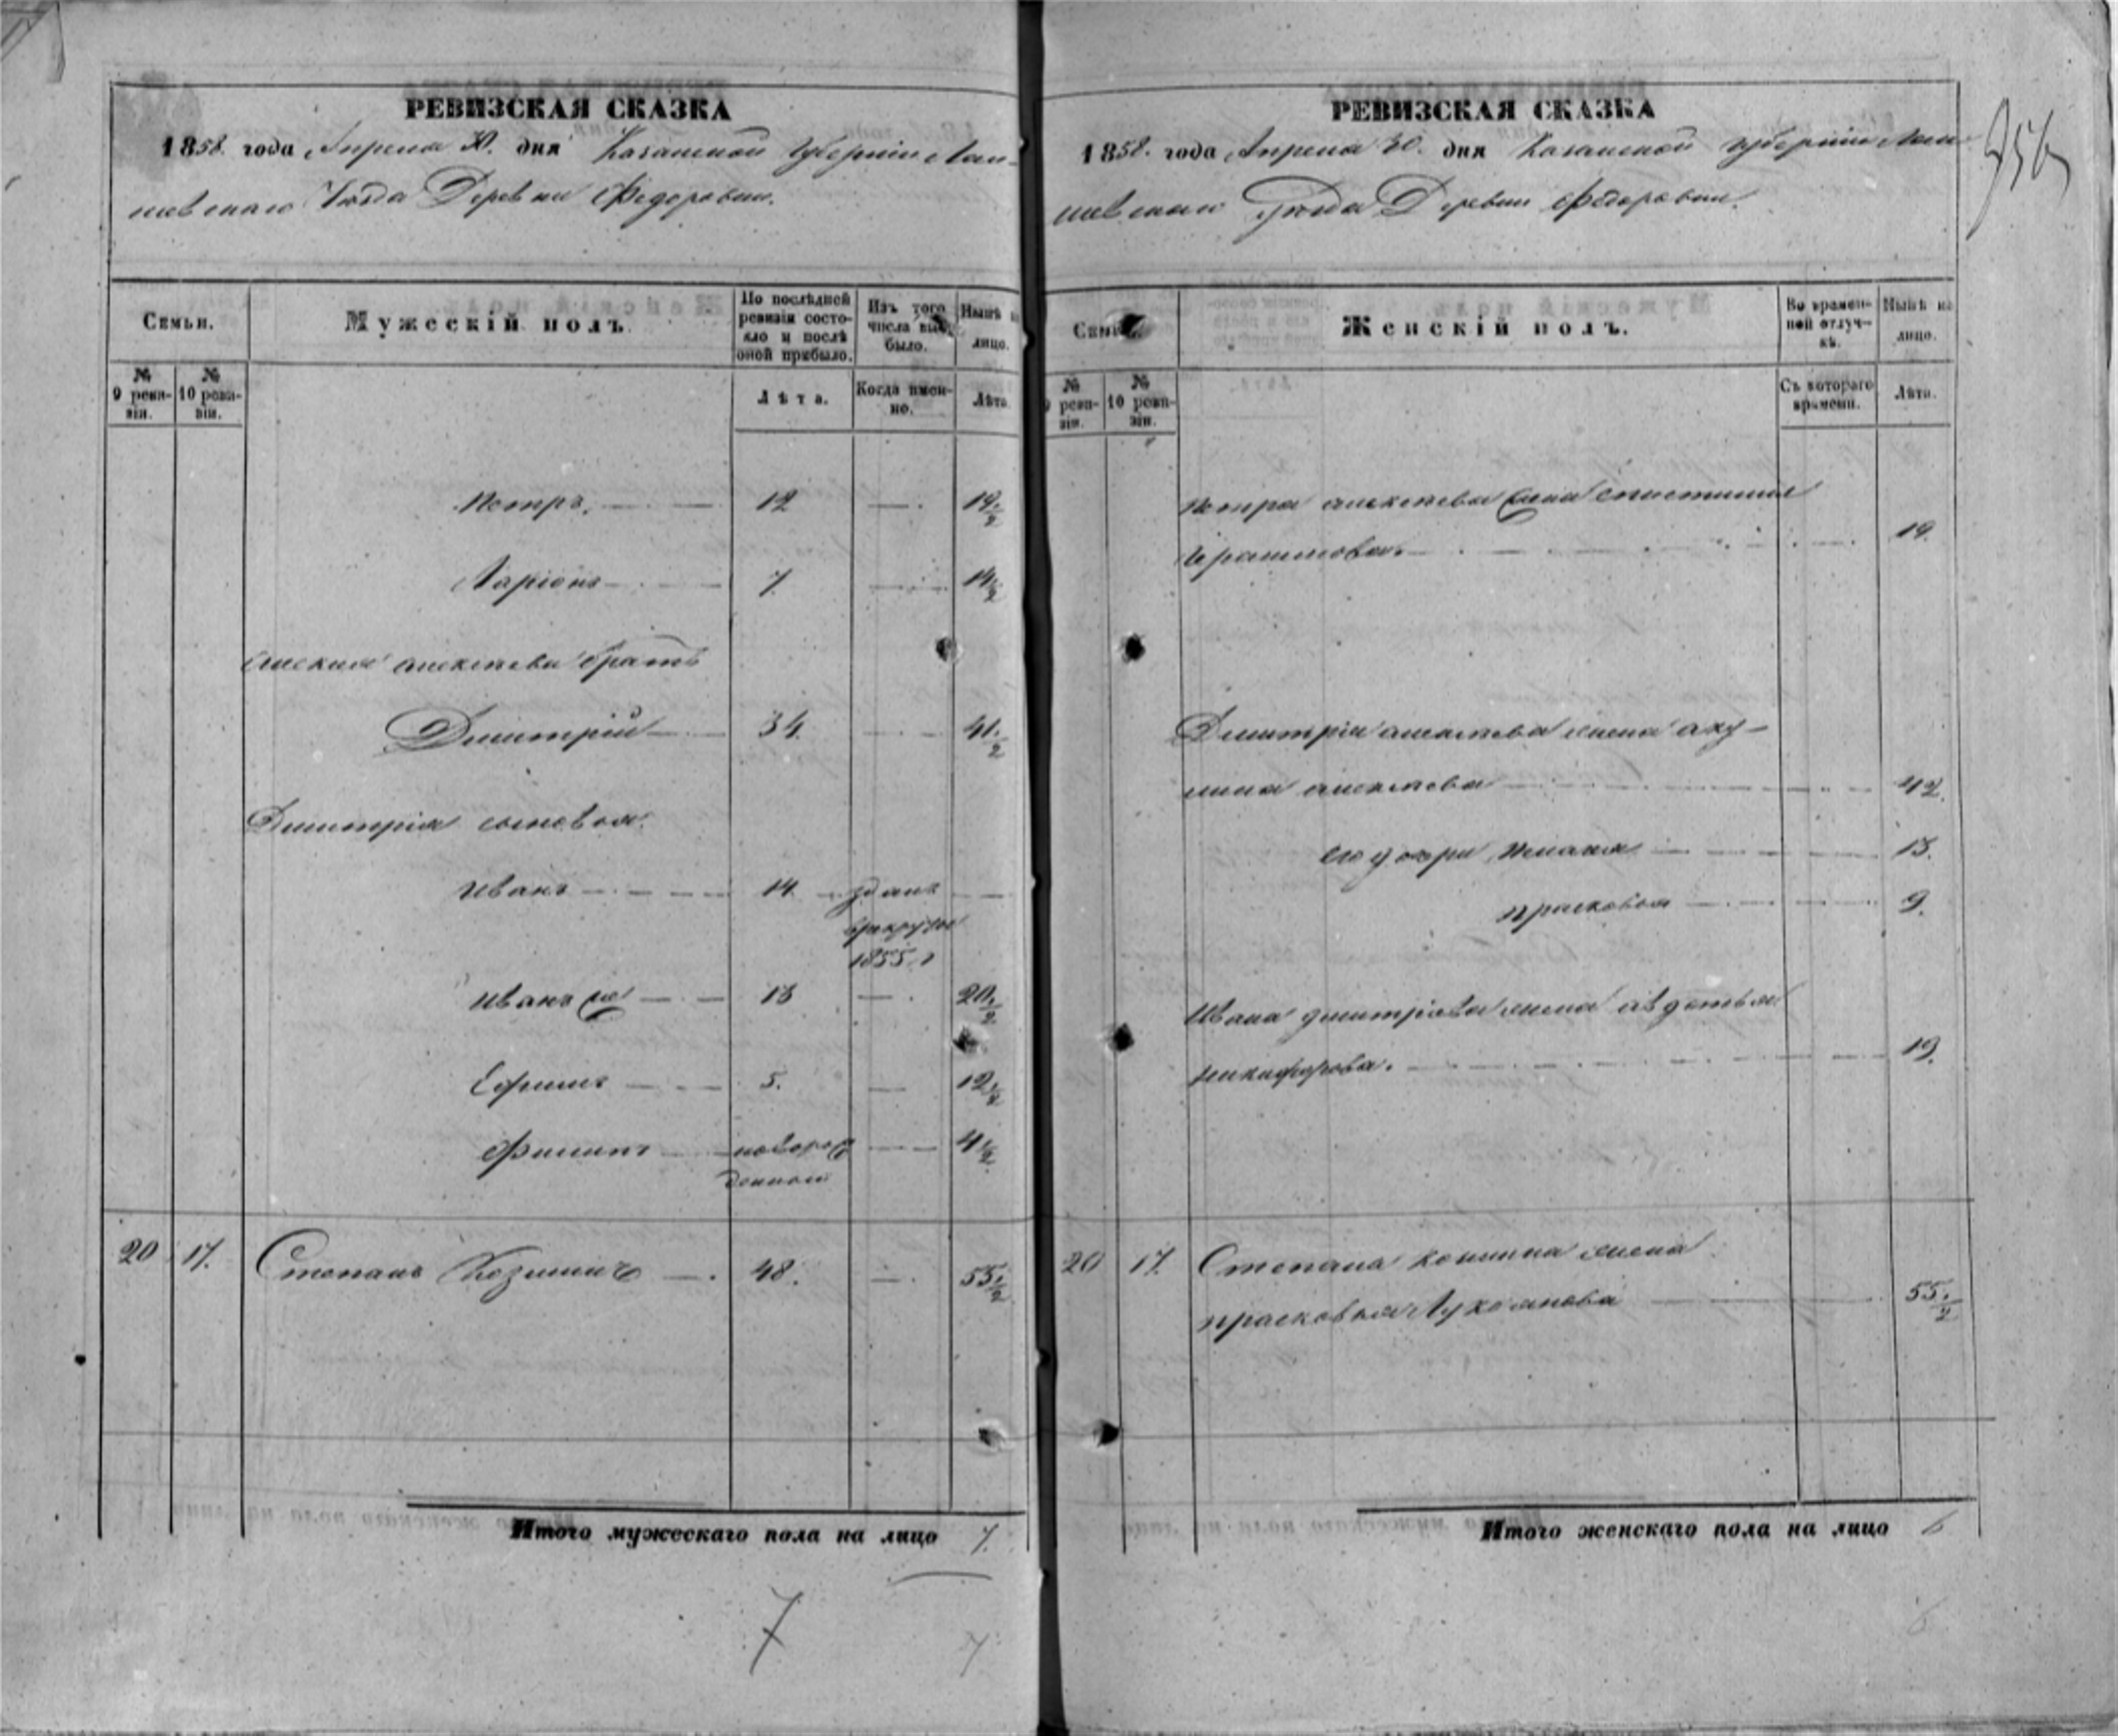 РЕВИЗСКАЯ СКАЗКА
1858. года Апреля 30. дня Казанской Губерніи Лаи-
шевскаго Уѣзда Деревни Федоровки.
Семьи.
Мужескій полъ.
По послѣдней ревизіи состояло и послѣ оной прибыло.
Изъ того числа выбыло.
Нынѣ на лицо.
№ 9 ревизіи.
№ 10 ревизіи.
Лѣта.
Когда именно.
Лѣта.
Петръ. 12 19 1/2
Ларіонъ 7. 14 1/2
алексѣева братъ
Дмитрій 34. 41. 1/2
Дмитрія сыновья.
Иванъ 14. зданъ
врекруты
1855. г
Иванъ 13 20. 1/2
Ефимъ 5. 12 1/2
Филипъ новорож 4 1/2
денной
20 17. Степанъ Козминъ 48. 55 1/2
Итого мужескаго пола на лицо 7.
7
7
РЕВИЗСКАЯ СКАЗКА
1858. года Апреля 30. дня Казанской губерніи Лаи-
шевскаго Уѣзда Деревни Федоровки.
956
Семьи.
Женскій полъ.
Во временной отлучкѣ.
Нынѣ на лицо.
№ 9 ревизіи.
№ 10 ревизіи.
Съ котораго времени.
Лѣта.
Петра алексѣева жена
19.
Дмитрія алексѣева жена аку-
лина алексѣева 42.
его дочри 13.
прасковья 9.
Ивана дмитріева жена авдотья
никифорова. 19.
20 17. Степана козмина жена
прасковья Лукоянова 55. 1/2
Итого женскаго пола на лицо 6
6